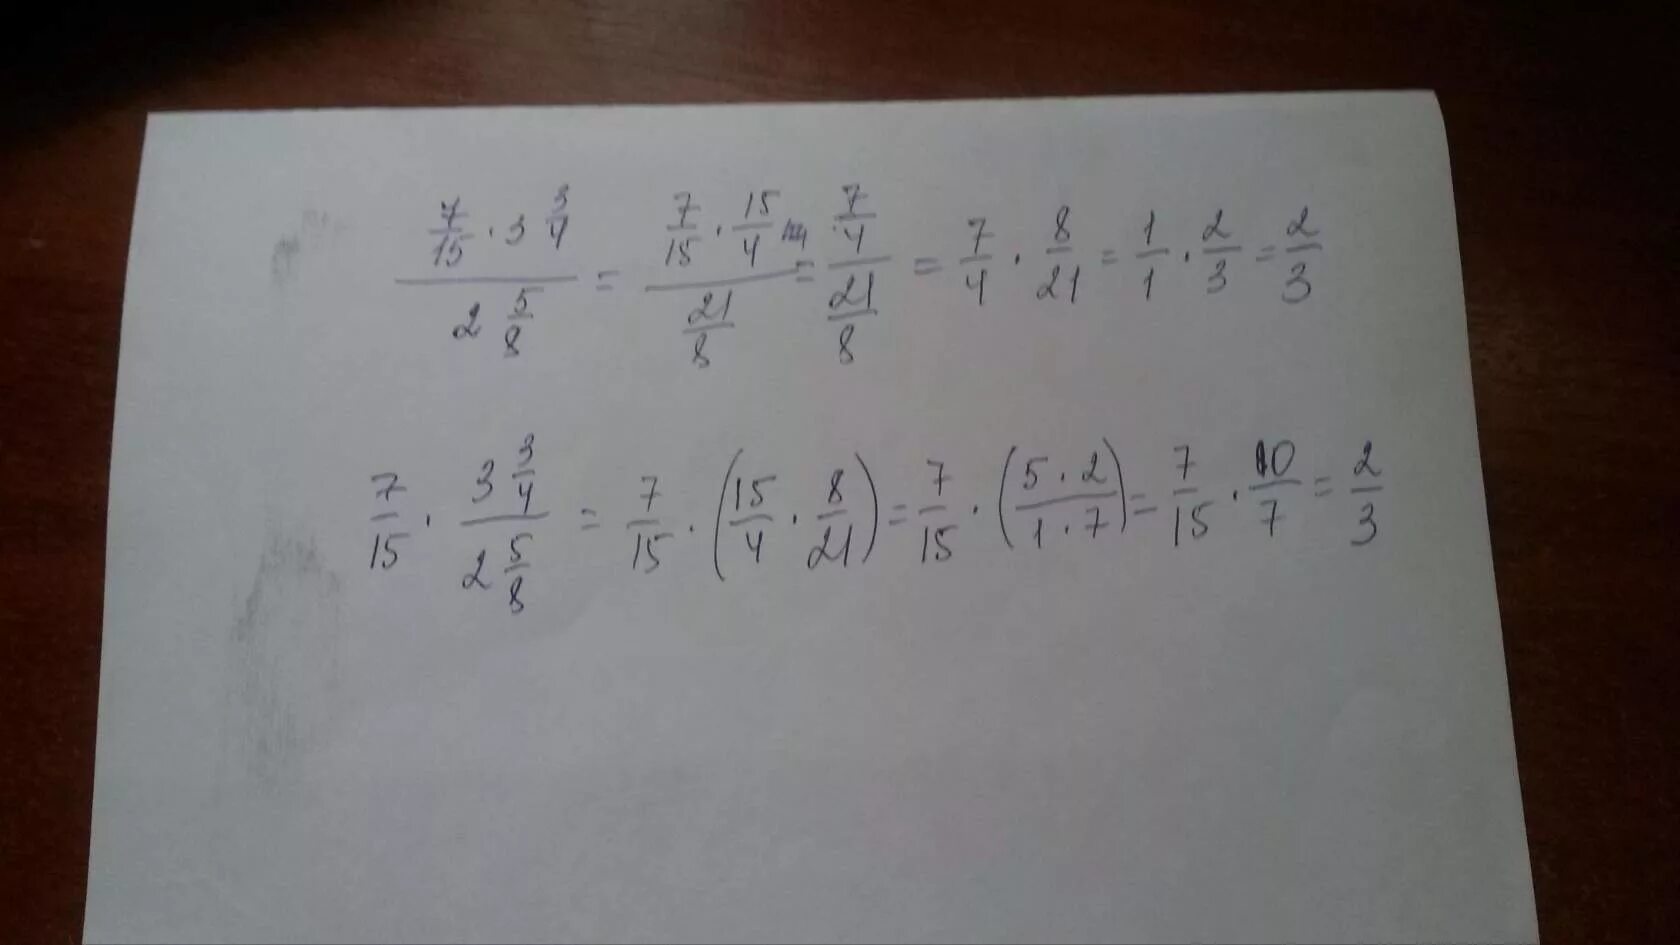 (7/15 · 3 3/4)/(2 5/8) = (7/15 · 15/4)/(21/8) = (7/4)/(21/8) = 7/4 · 8/21 = 1/1 · 2/3 = 2/3
7/15 · (3 3/4)/(2 5/8) = 7/15 · (15/4 · 8/21) = 7/15 · (5 · 2/1 · 7) = 7/15 · 10/7 = 2/3